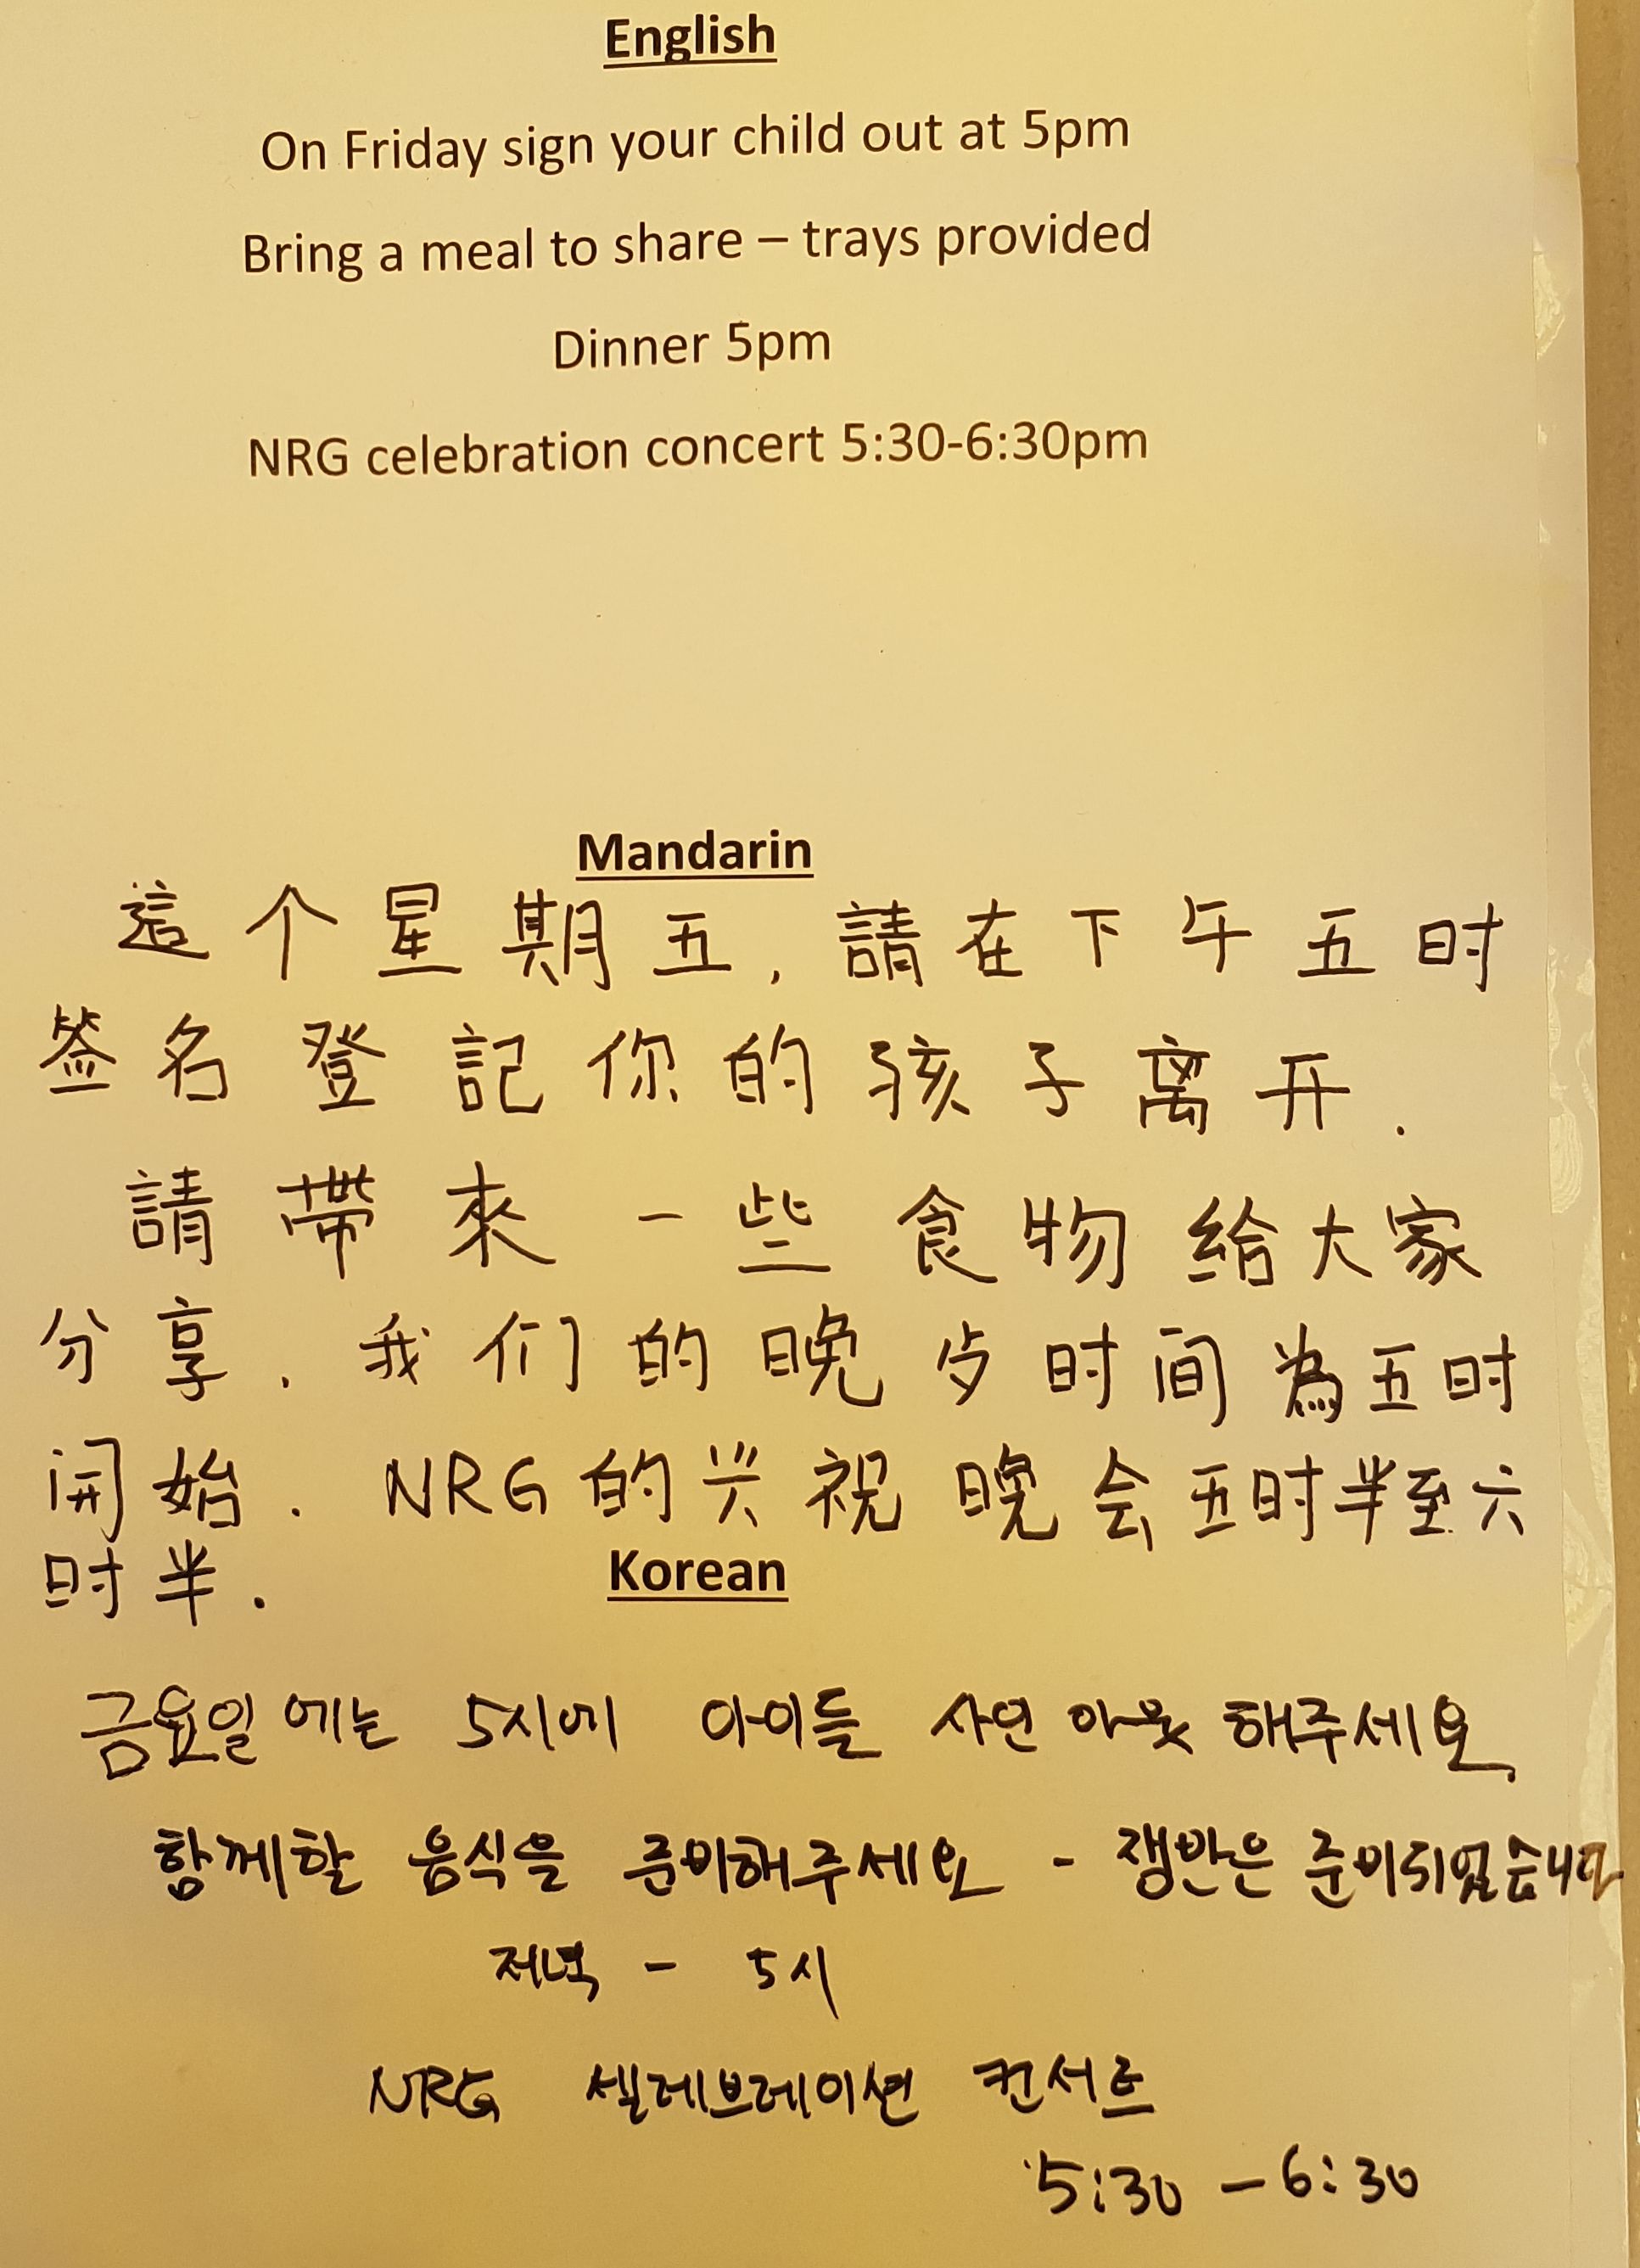 English
On Friday sign your child out at 5pm
Bring a meal to share – trays provided
Dinner 5pm
NRG celebration concert 5:30-6:30pm
Mandarin
這个星期五，請在下午五时
签名登記你的孩子离开.
請帶來一些食物給大家
分享. 我们的晚歺时间為五时
開始. NRG的兴祝晚会五时半至六
时半.
Korean
금요일에는 5시에 아이들 사인 아웃 해주세요.
함께할 음식을 준비해주세요 - 쟁반은 준비되었습니다
저녁 - 5시
NRG 셀레브레이션 컨서트
5:30 - 6:30